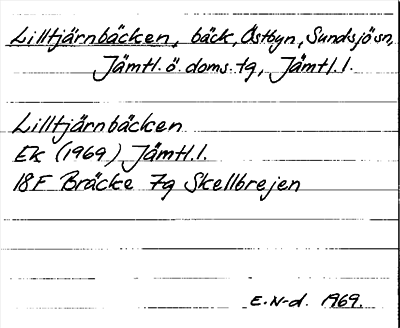 Lilltjärnbäcken, bäck, Östbyn, Sundsjö sn,
Jämtl. ö. doms. tg, Jämtl. l.
Lilltjärnbäcken
Ek (1969) Jämtl. l.
18F Bräcke 7g Skellbrejen
E. N-d. 1969.